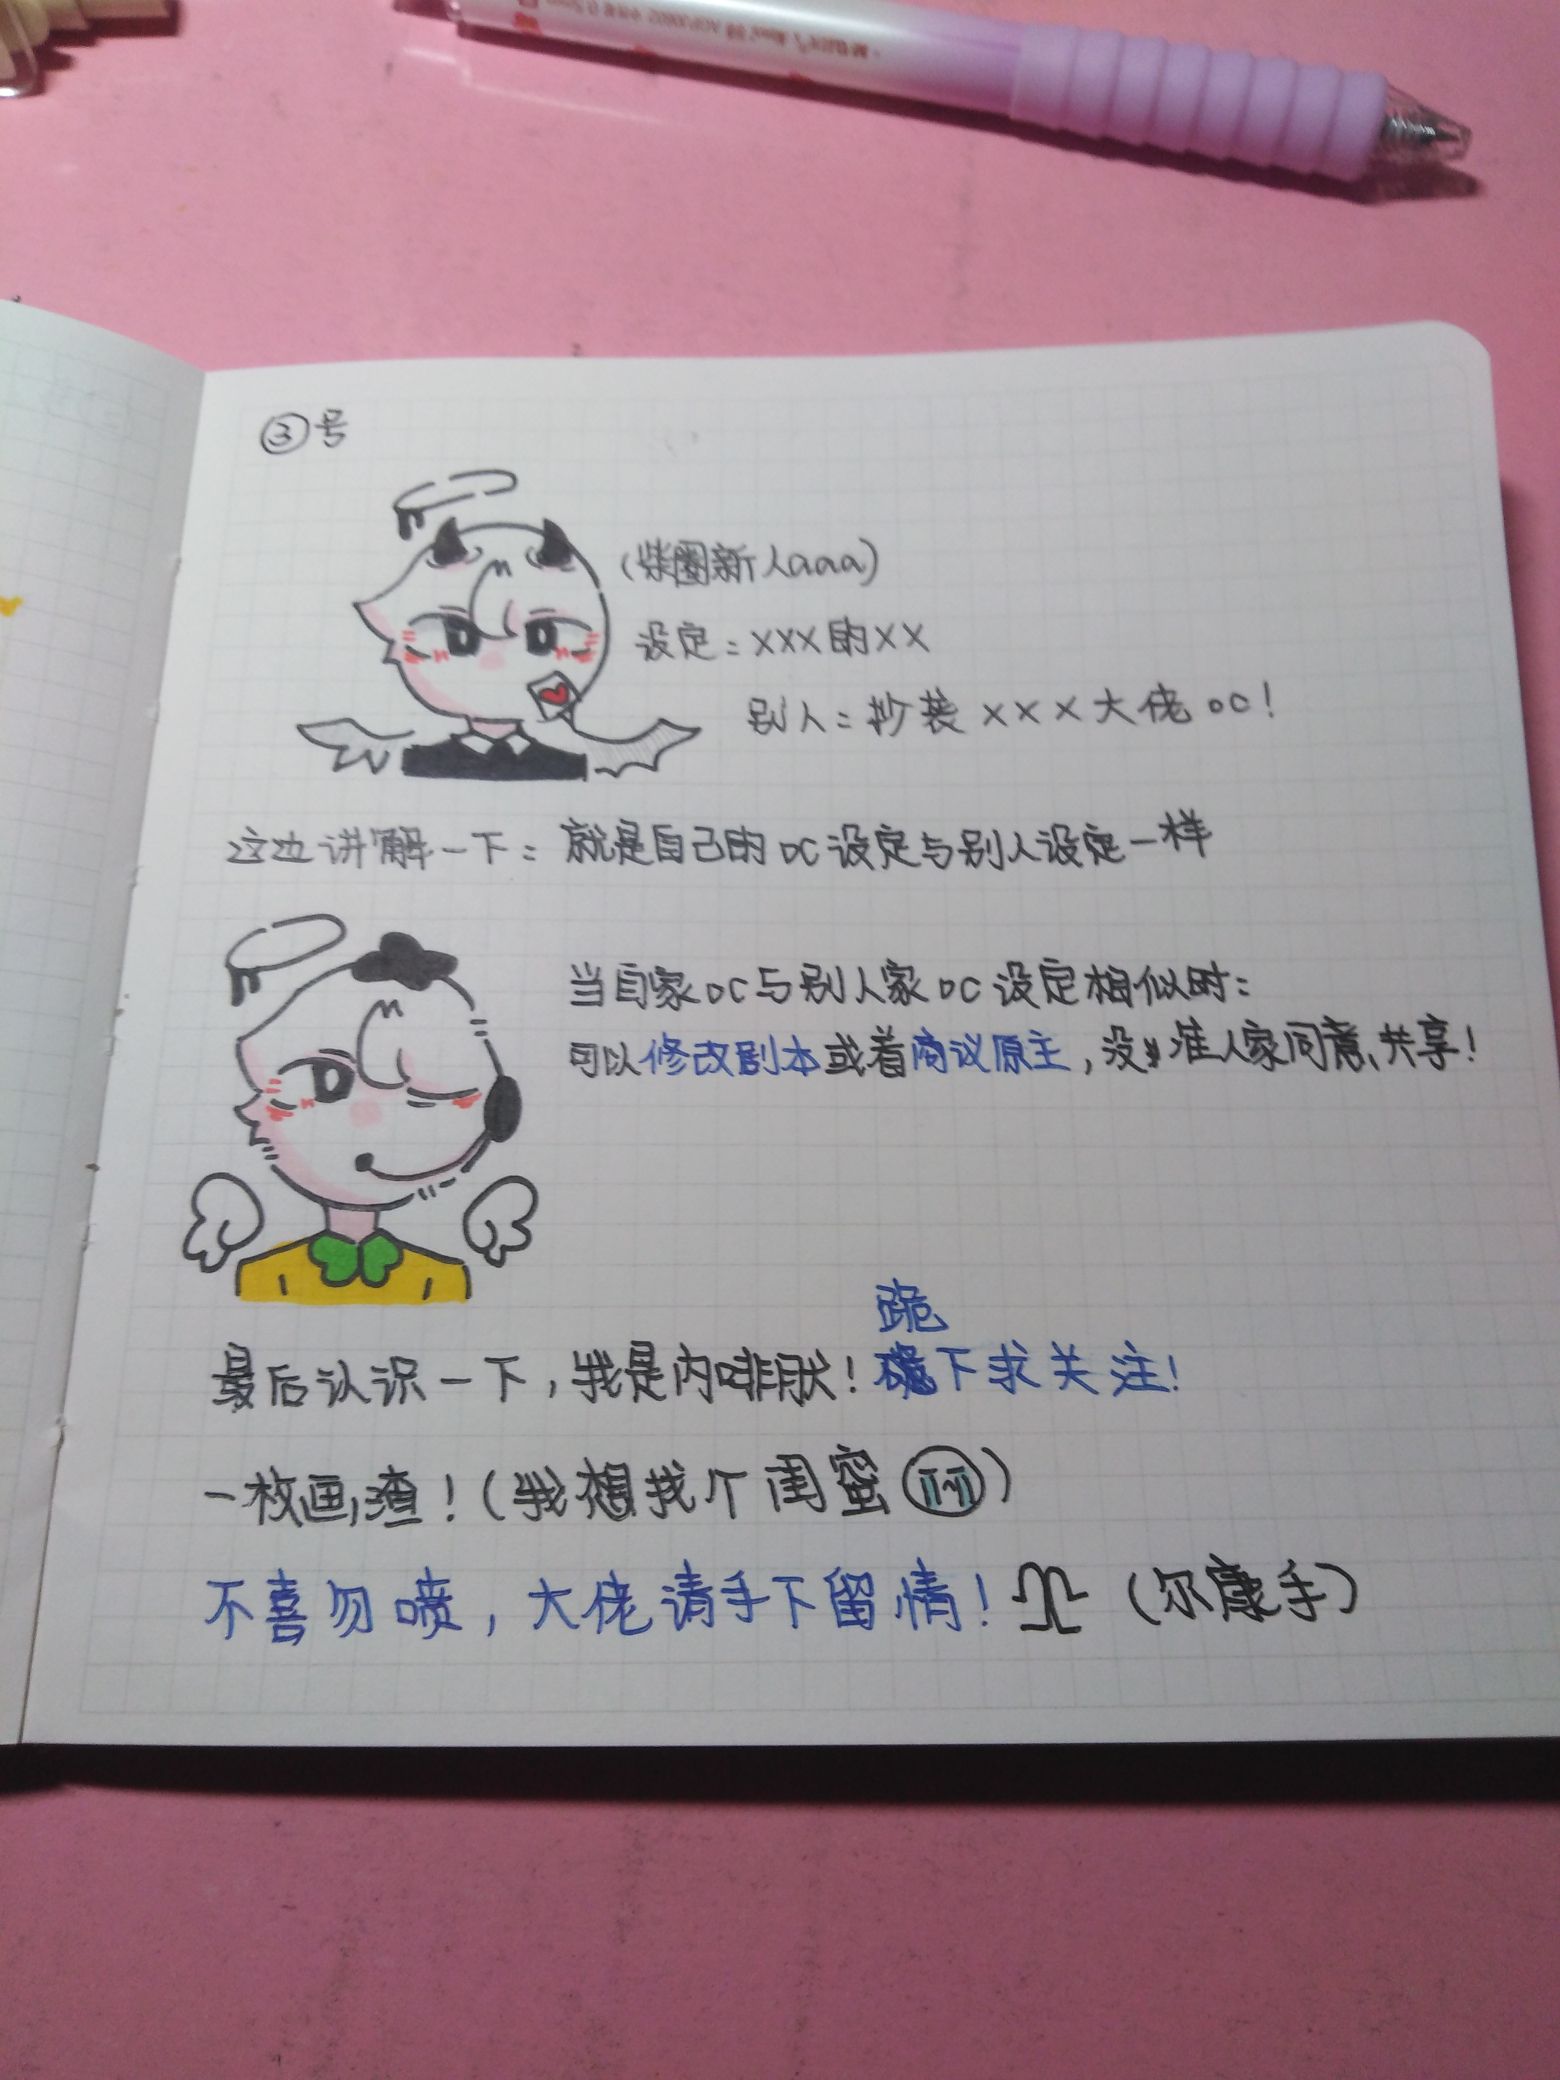 ③号
(柴圈新人aaa)
设定：xxx的xx
别人：抄袭xxx大佬oc！
这边讲解一下：就是自己的oc设定与别人设定一样
当自家oc与别人家oc设定相似时：
可以修改剧本或着商议原主，没准人家同意共享！
跪
最后认识一下，我是内啡肽！下求关注！
一枚画渣！(我想找个闺蜜)
不喜勿喷，大佬请手下留情！(尔康手)